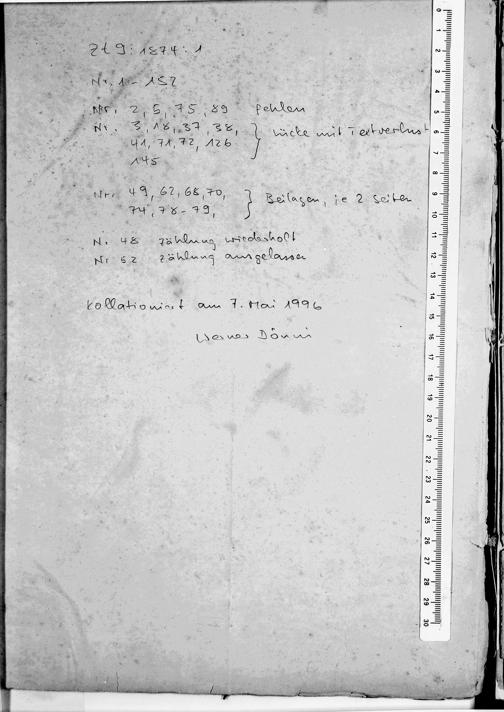 Ztg: 1874: 1
Nr. 1 - 152
Nr. 2, 5, 75, 89 fehlen
Nr. 3, 18, 37, 38, } Lücke mit Textverlust
41, 71, 72, 126
145
Nr. 49, 62, 68, 70, } Beilagen, je 2 Seiten
74, 78-79,
N. 48 Zählung wiederholt
Nr 52 Zählung ausgelassen
Kollationiert am 7. Mai 1996
Werner Dönni
0 1 2 3 4 5 6 7 8 9 10 11 12 13 14 15 16 17 18 19 20 21 22 23 24 25 26 27 28 29 30